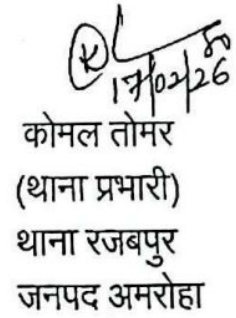 17/02/26
कोमल तोमर
(थाना प्रभारी)
थाना रजबपुर
जनपद अमरोहा